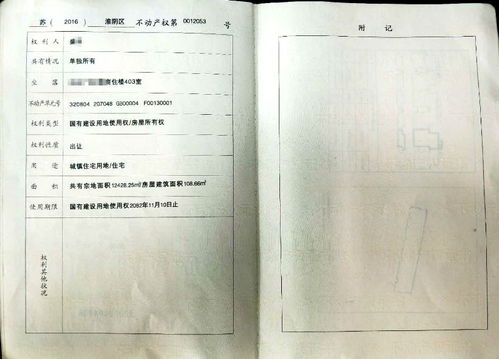 苏（2016）淮阴区 不动产权第 0012053 号
权利人 盛
共有情况 单独所有
坐落 商住楼403室
不动产单元号 320804 207048 GB00004 F00130001
权利类型 国有建设用地使用权/房屋所有权
权利性质 出让
用途 城镇住宅用地/住宅
面积 共有宗地面积12428.25㎡/房屋建筑面积108.66㎡
使用期限 国有建设用地使用权2082年11月10日止
权利其他状况
附记